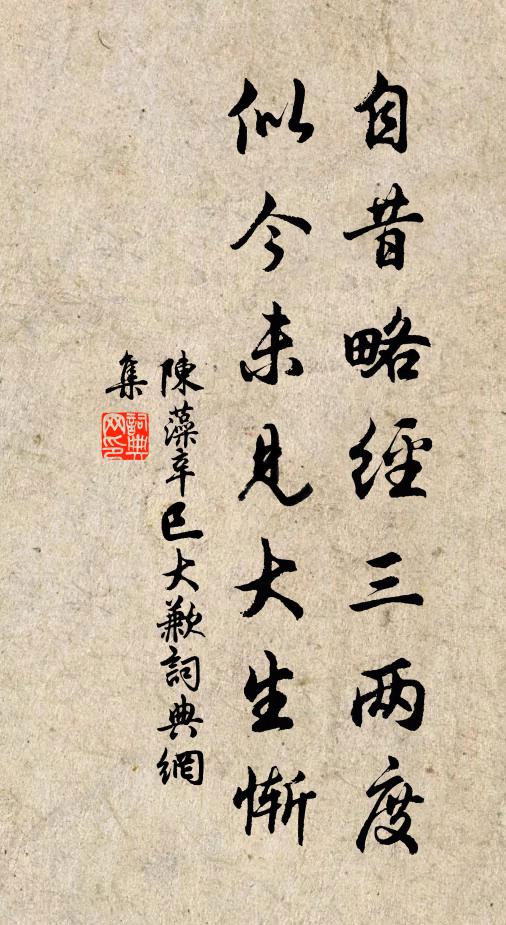 自昔略經三两度
似今未見大生慚
陳藻辛巳大歉詞典網
集
詞典网印